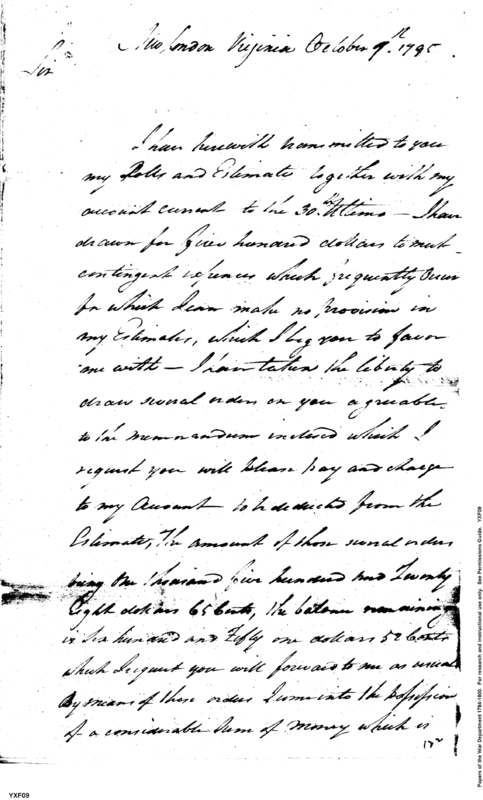 New London Virginia October 9th. 1795.
Sir
I have herewith transmitted to you
my Rolls and Estimates together with my
account current to the 30th Ultimo — I have
drawn for five hundred dollars to meet
contingent expences which frequently Occur
for which I can make no provision in
my Estimates, which I beg you to favor
me with — I have taken the liberty to
draw several orders on you agreeable
to the memorandum inclosed which I
request you will please pay and charge
to my Account to be deducted from the
Estimate, The amount of those several orders
being One thousand five hundred and Twenty
Eight dollars 65 Cents, the balance remaining
is Six hundred and Fifty one dollars 52 Cents
which I request you will forward to me as usual
By means of these orders I come into the possession
of a considerable Sum of money which is
YXF09
Papers of the War Department 1784-1800. For research and instructional use only. See Permissions Guide. YXF09